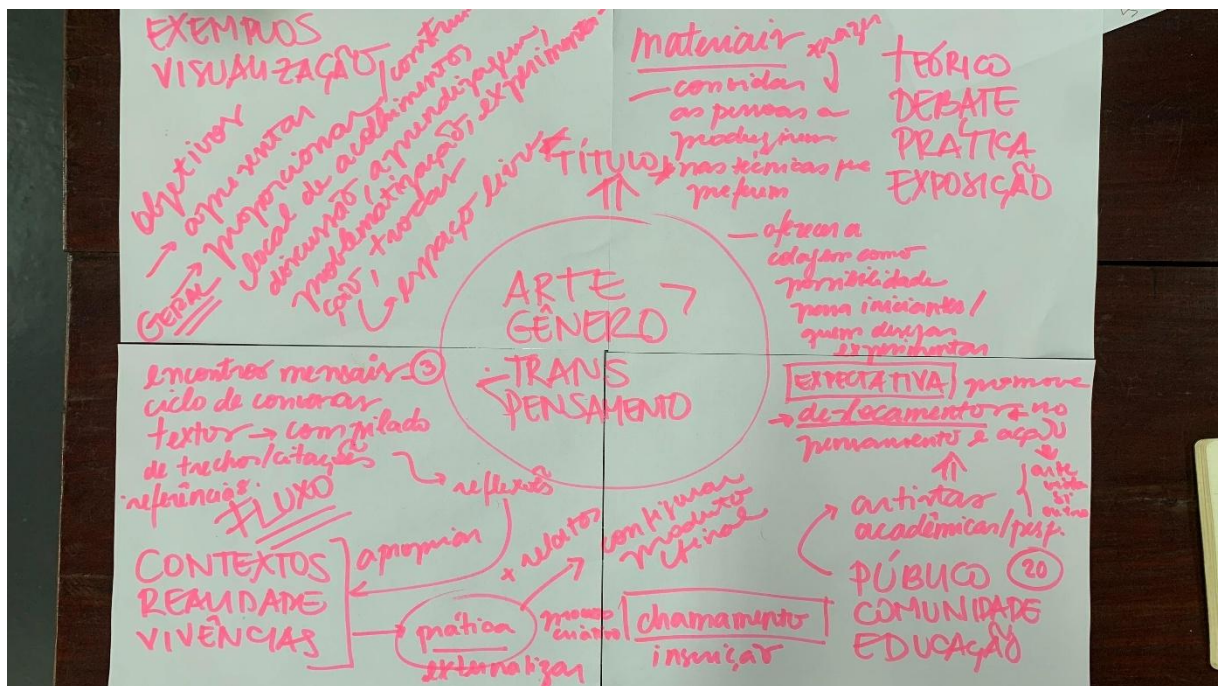 EXEMPLOS
VISUALIZAÇÃO
objetivos
→ apresentar
GERAL → proporcionar / construir
local de acolhimento,
discussão, aprendizagem,
problematização, experimenta-
ção, trocas
↳ espaço livre
TÍTULO
ARTE
GÊNERO
TRANS
PENSAMENTO
materiais
— convidar
as pessoas a
produzirem
nas técnicas que
preferem
— oferecer a
colagem como
possibilidade
para iniciantes/
quem desejar
experimentar
TEÓRICO
DEBATE
PRÁTICA
EXPOSIÇÃO
encontros mensais - 3
ciclo de conversas
textos → compilado
de trechos/citações
referências.
→ reflexões
FLUXO
apropriar
CONTEXTOS
REALIDADE
VIVÊNCIAS
prática
externalizar
+ relatos
configurar
produto
final
chamamento
inscrição
EXPECTATIVA promove
→ deslocamentos no
pensamento e ação
arte
si
outro
artistas
acadêmicas/pesq.
PÚBLICO 20
COMUNIDADE
EDUCAÇÃO